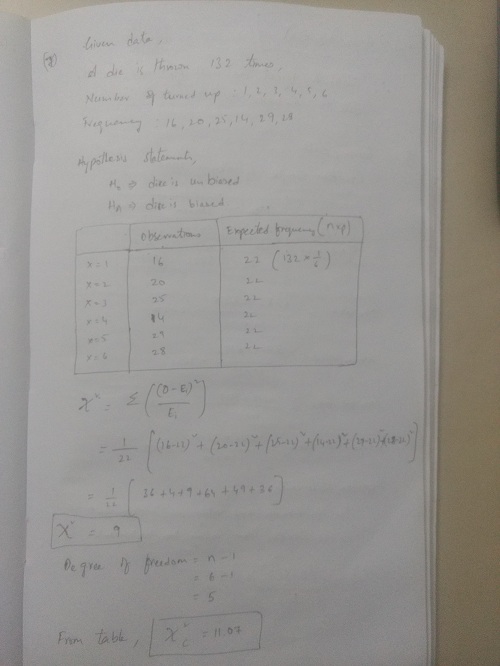 (8)
Given data,
A die is thrown 132 times,
Number of turned up : 1, 2, 3, 4, 5, 6
Frequency : 16, 20, 25, 14, 29, 28
Hypothesis statements,
H₀ ⇒ dice is unbiased
Hₐ ⇒ dice is biased
Observations Expected frequency (n×p)
x=1 16 22 (132 × 1/6)
x=2 20 22
x=3 25 22
x=4 14 22
x=5 29 22
x=6 28 22
χ² = Σ ((O-Eᵢ)²/Eᵢ)
= 1/22 [(16-22)² + (20-22)² + (25-22)² + (14-22)² + (29-22)² + (28-22)²]
= 1/22 [36+4+9+64+49+36]
χ² = 9
Degree of freedom = n-1
= 6-1
= 5
From table, χ²c = 11.07